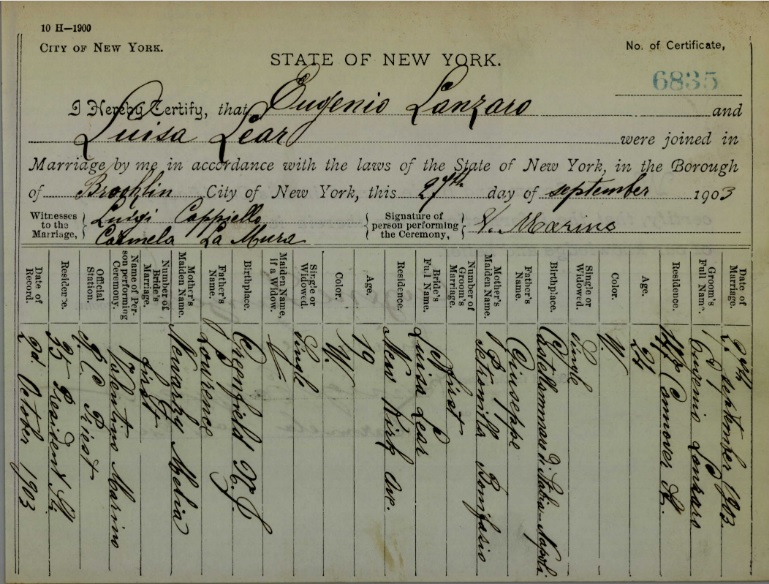 10 H—1900
CITY OF NEW YORK.
STATE OF NEW YORK.
No. of Certificate,
6835
I Hereby Certify, that Eugenio Lanzaro and
Luisa Lear were joined in
Marriage by me in accordance with the laws of the State of New York, in the Borough
of Brooklin City of New York, this 27th day of september 1903
Witnesses to the Marriage, { Luigi Cappiello
Carmela La Mura
Signature of person performing the Ceremony, } V. Marino
Date of Marriage. 27th september 1903.
Groom's Full Name. Eugenio Lanzaro
Residence. Connover St.
Age. 24
Color. W.
Single or Widowed. Single
Birthplace. Castellammare di Stabia Napoli
Father's Name. Giuseppe
Mother's Maiden Name. Petronilla Bonifacio
Number of Groom's Marriage. first
Bride's Full Name. Luisa Lear
Residence. New Kirk Ave.
Age. 19
Color. W.
Single or Widowed. Single
Maiden Name, if a Widow.
Birthplace. Greenfield N. J.
Father's Name. Lawrence
Mother's Maiden Name. Melia
Number of Bride's Marriage. first
Name of Person performing Ceremony. Valentino Marino
Official Station. R. C. Priest
Residence. 35 President St.
Date of Record. 2d. October 1903